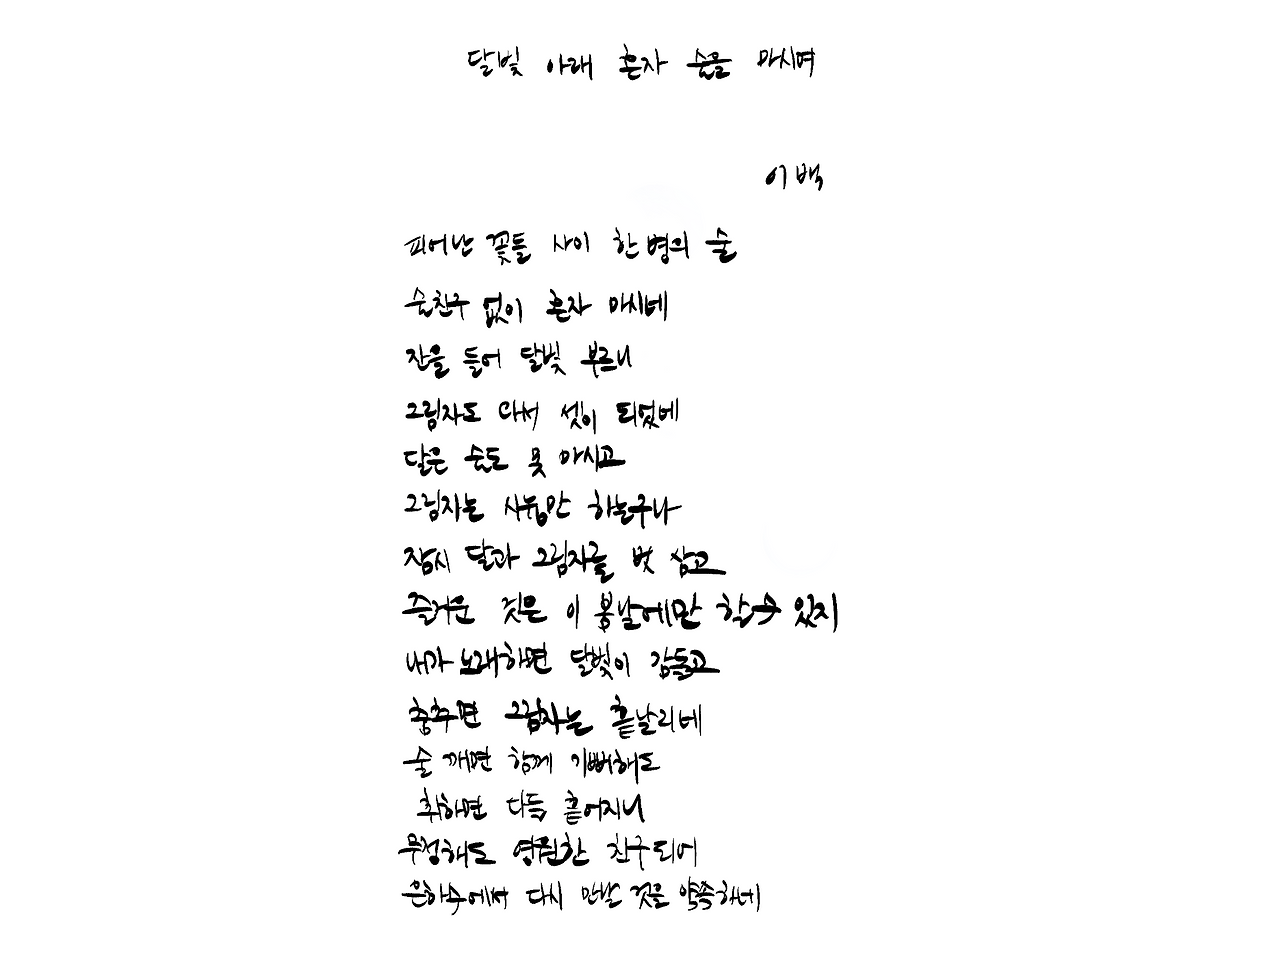 달빛 아래 혼자 술을 마시며
이백
피어난 꽃들 사이 한 병의 술
술친구 없이 혼자 마시네
잔을 들어 달빛 부르니
그림자도 와서 셋이 되었네
달은 술도 못 마시고
그림자는 시늉만 하는구나
잠시 달과 그림자를 벗 삼고
즐거운 것은 이 봄날에만 할 수 있지
내가 노래하면 달빛이 감돌고
춤추면 그림자는 흩날리네
술 깨면 함께 기뻐해도
취하면 다들 흩어지니
무정해도 영원한 친구되어
은하수에서 다시 만날 것을 약속하네